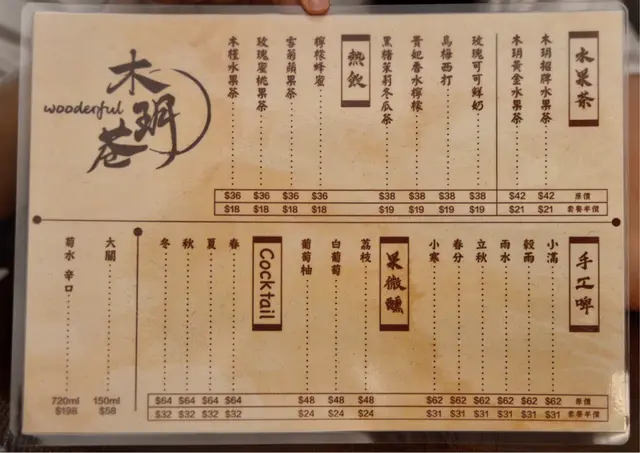 水果茶
木玥招牌水果茶 $42 $21
木玥黃金水果茶 $42 $21
玫瑰可可鮮奶 $38 $19
烏梅西打 $38 $19
貴妃香水檸檬 $38 $19
黑糖茉莉冬瓜茶 $38 $19
原價
套餐半價
熱飲
檸檬蜂蜜 $36 $18
雪菊蘋果茶 $36 $18
玫瑰蜜桃果茶 $36 $18
木槿水果茶 $36 $18
木玥巷
wooderful
手工啤
小滿 $62 $31
穀雨 $62 $31
雨水 $62 $31
立秋 $62 $31
春分 $62 $31
小寒 $62 $31
原價
套餐半價
果微醺
荔枝 $48 $24
白葡萄 $48 $24
葡萄柚 $48 $24
Cocktail
春 $64 $32
夏 $64 $32
秋 $64 $32
冬 $64 $32
大關 150ml $58
菊水 辛口 720ml $198